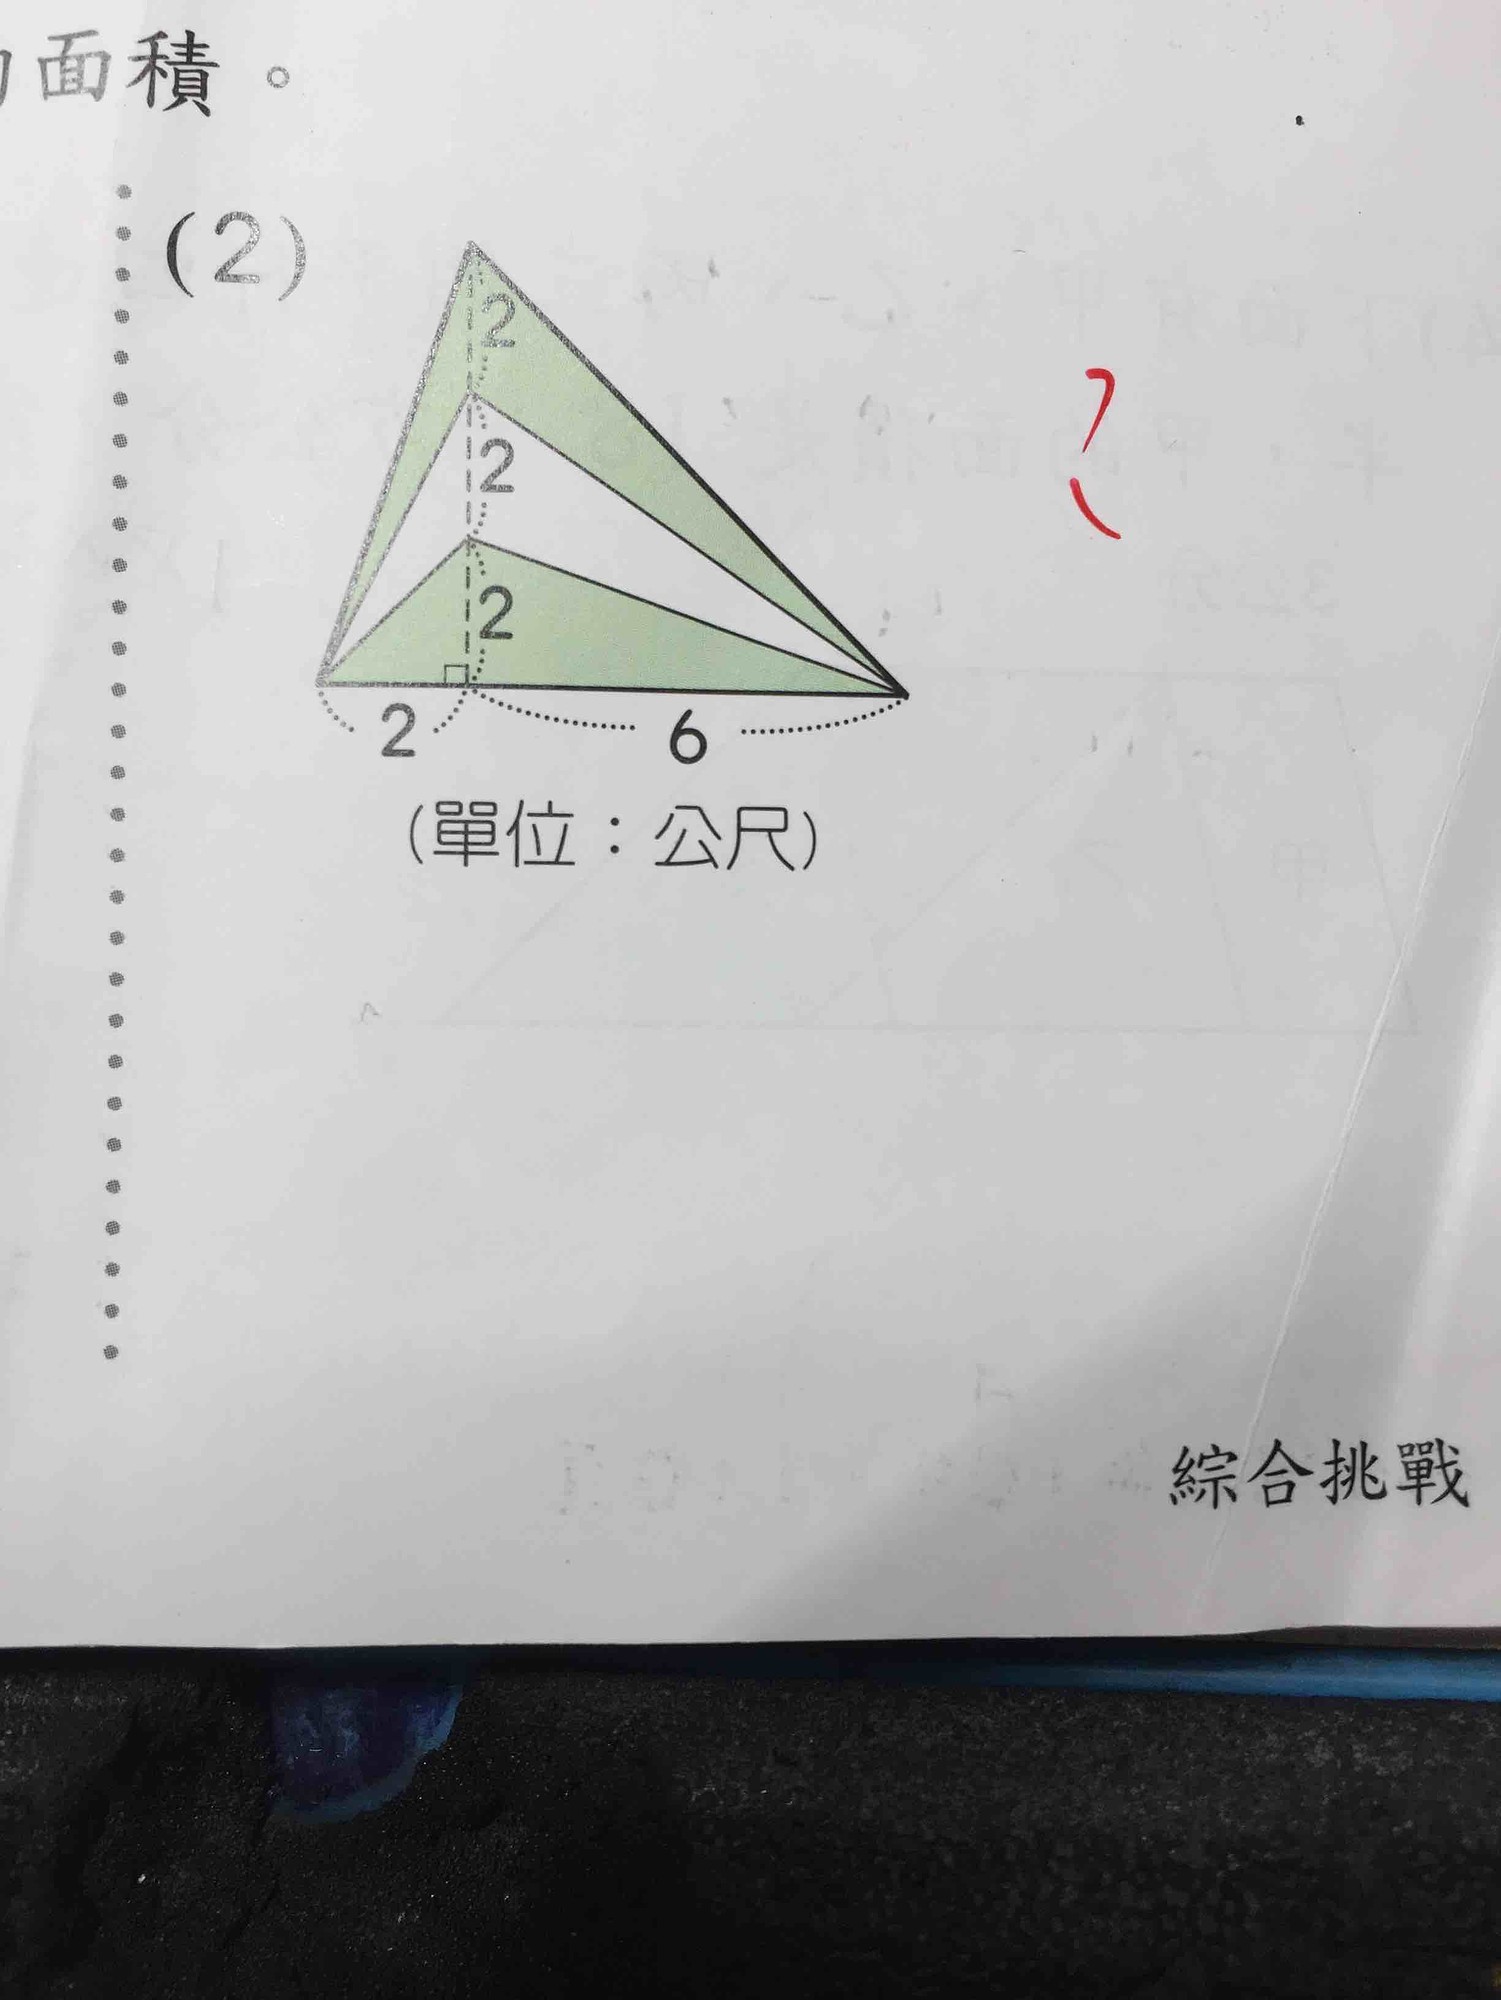 面積。
(2)
2
2
2
2 6
(單位：公尺)
綜合挑戰